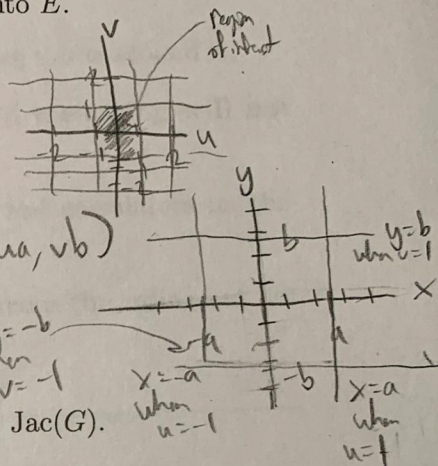 nto E.
v
region
of interest
u
-2 -1 2
y
ua, vb)
b
y=b
when v=1
x
=-b
-a
a
v=-1
x=-a
when
u=-1
-b
x=a
when
u=1
Jac(G).